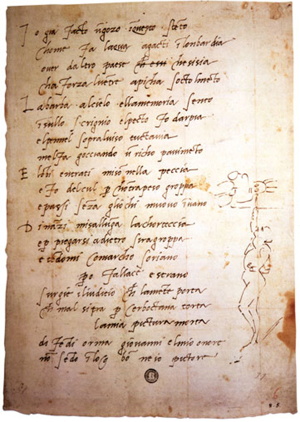 I o gia facto ngozo in questo stento
chome fa lacqua agacti i lombardia
over daltro paese che sisia
cha forza lventre apicha socto lmento
L a barba alcielo ellamemoria sento
i sullo scrignio elpecto fo darpia
elpennel sopraluiso tuctavia
mel fa gocciando u richo pauimeto
E lobi entrati miso nella peccia
e fo del cul p chotrapeso groppa
e passi seza gliochi muouo i uano
D inazi misallunga lachorteccia
e p piegarsi adietro siragroppa
e tedomi comarcho soriano
po fallace e strano
surgie iliuditio ch lamete porta
ch mal sipra p cerboctana torta
lamia pictura morta
di fedi orma giovanni elmio onore
no sedo i loco bo ne io pictore